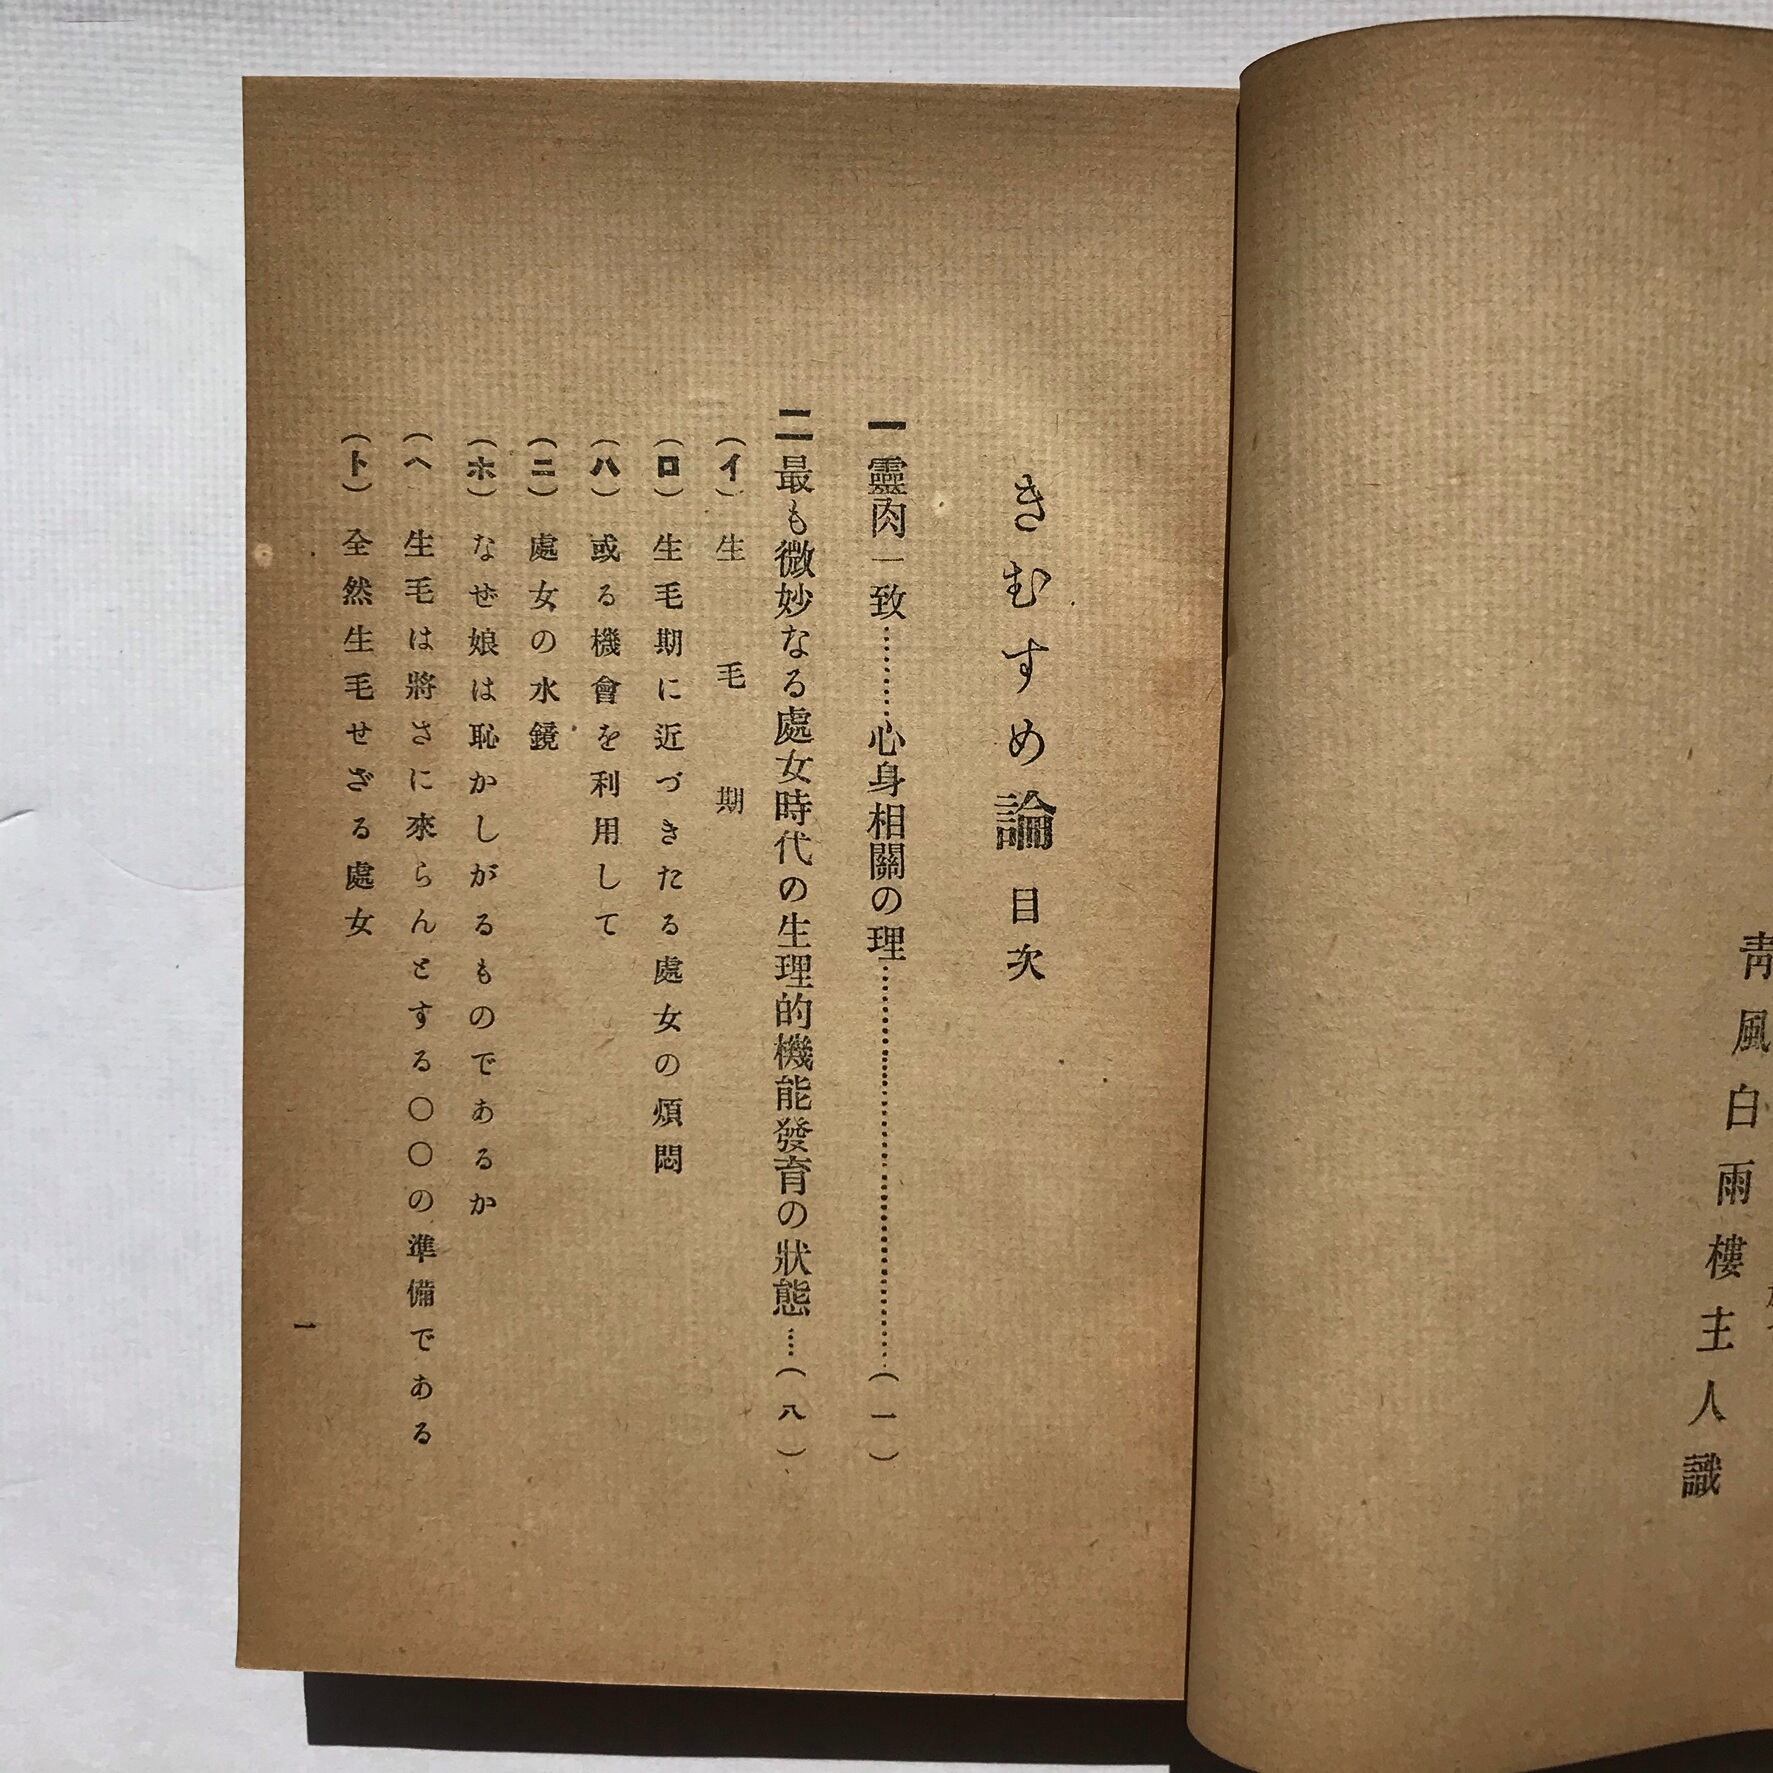 靑風白雨樓主人識
きむすめ論 目次
一 靈肉一致………心身相關の理……………………………………(一)
二 最も微妙なる處女時代の生理的機能發育の狀態……(八)
(イ) 生毛期
(ロ) 生毛期に近づきたる處女の煩悶
(ハ) 或る機會を利用して
(ニ) 處女の水鏡
(ホ) なぜ娘は恥かしがるものであるか
(ヘ 生毛は將さに來らんとする〇〇の準備である
(ト) 全然生毛せざる處女
一